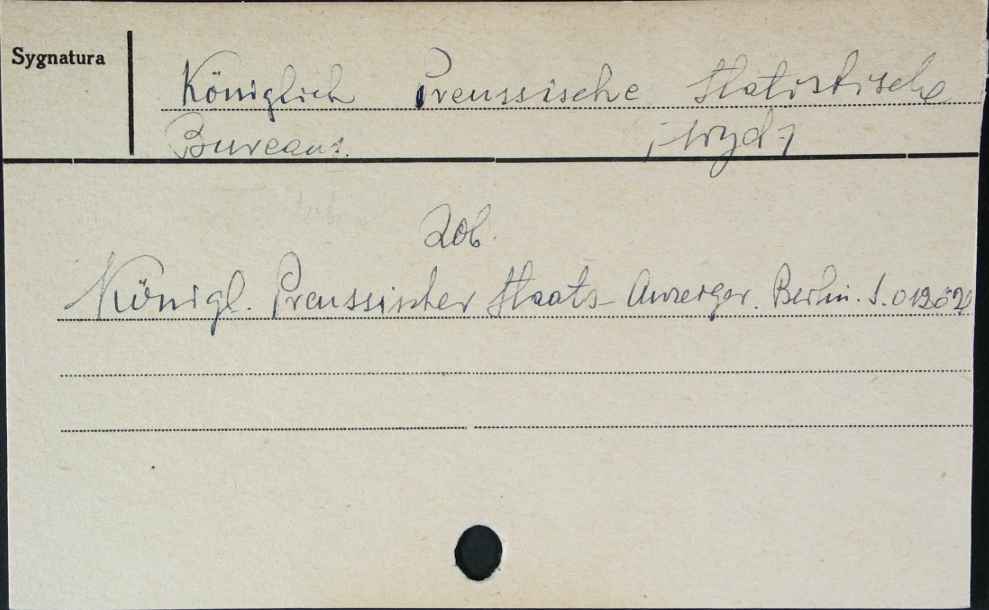 Sygnatura
Königlich Preussische Statistische
Bureaus. /wyd/
Zob.
Königl. Preussischer Staats-Anzeiger. Berlin. S.